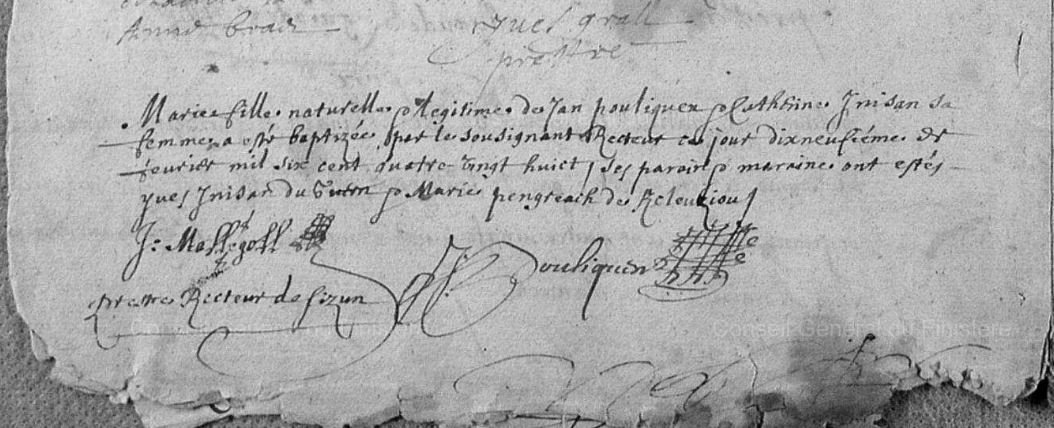 Anne braz
yves grall
prestre
Marie fille naturelle et legitime de Jan pouliquen et Catherine Inisan sa
femme a esté baptizée par le sousignant Recteur ce jour dixneufiéme de
feuvrier mil six cent quatre vingt huict, ses parain et maraine ont estés
yves Inisan du et Marie pengreach de Releuziou
J: Mallegoll
prestre Recteur de Sizun
J: Pouliquen
Conseil Général du Finistère